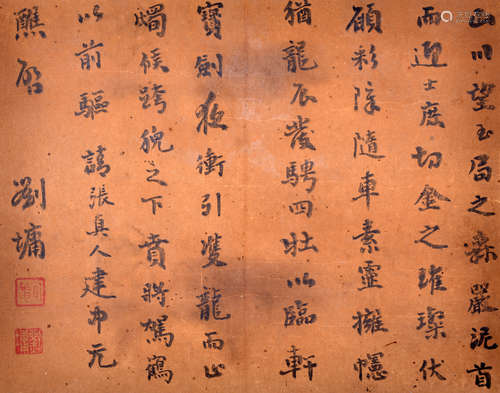 山川望玉局之森嚴泥首
而迎士庶切金之璀璨伏
願彩隊隨車素靈擁幰
猶龍辰發騁四牡以臨軒
寶劍夜衝引雙龍而
燭候跨貌之下賁將駕鶴
以前驅 請張真人建中元
醮啓 劉墉